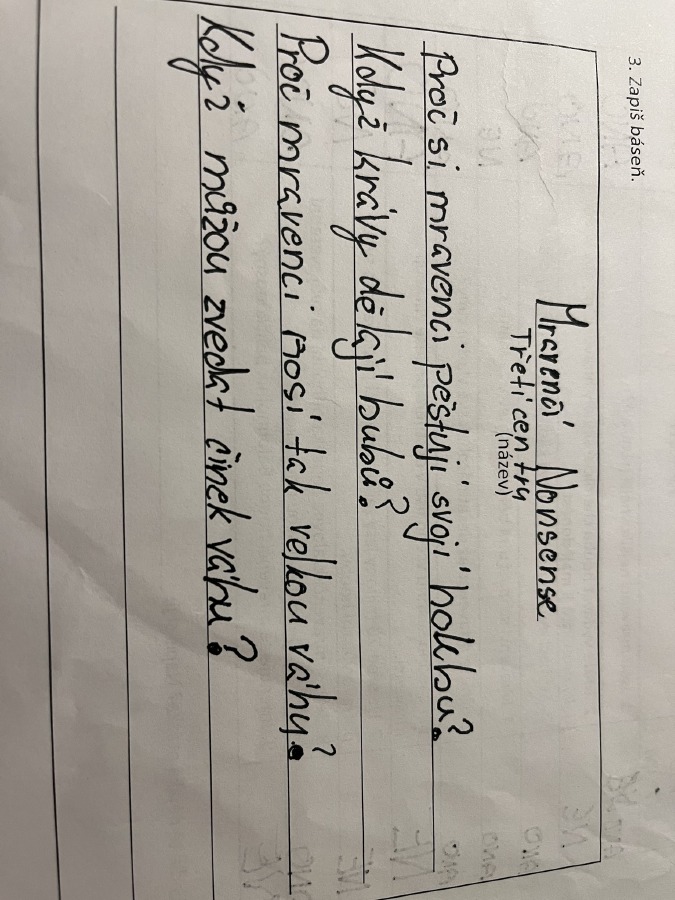 3. Zapiš báseň.
Mravenčí Nonsense
Třetí centry
(název)
Proč si mravenci pěstují svojí holubu?
Když krávy dělají bubů?
Proč mravenci nosí tak velkou váhy?
Když můžou zvedat činek váhu?